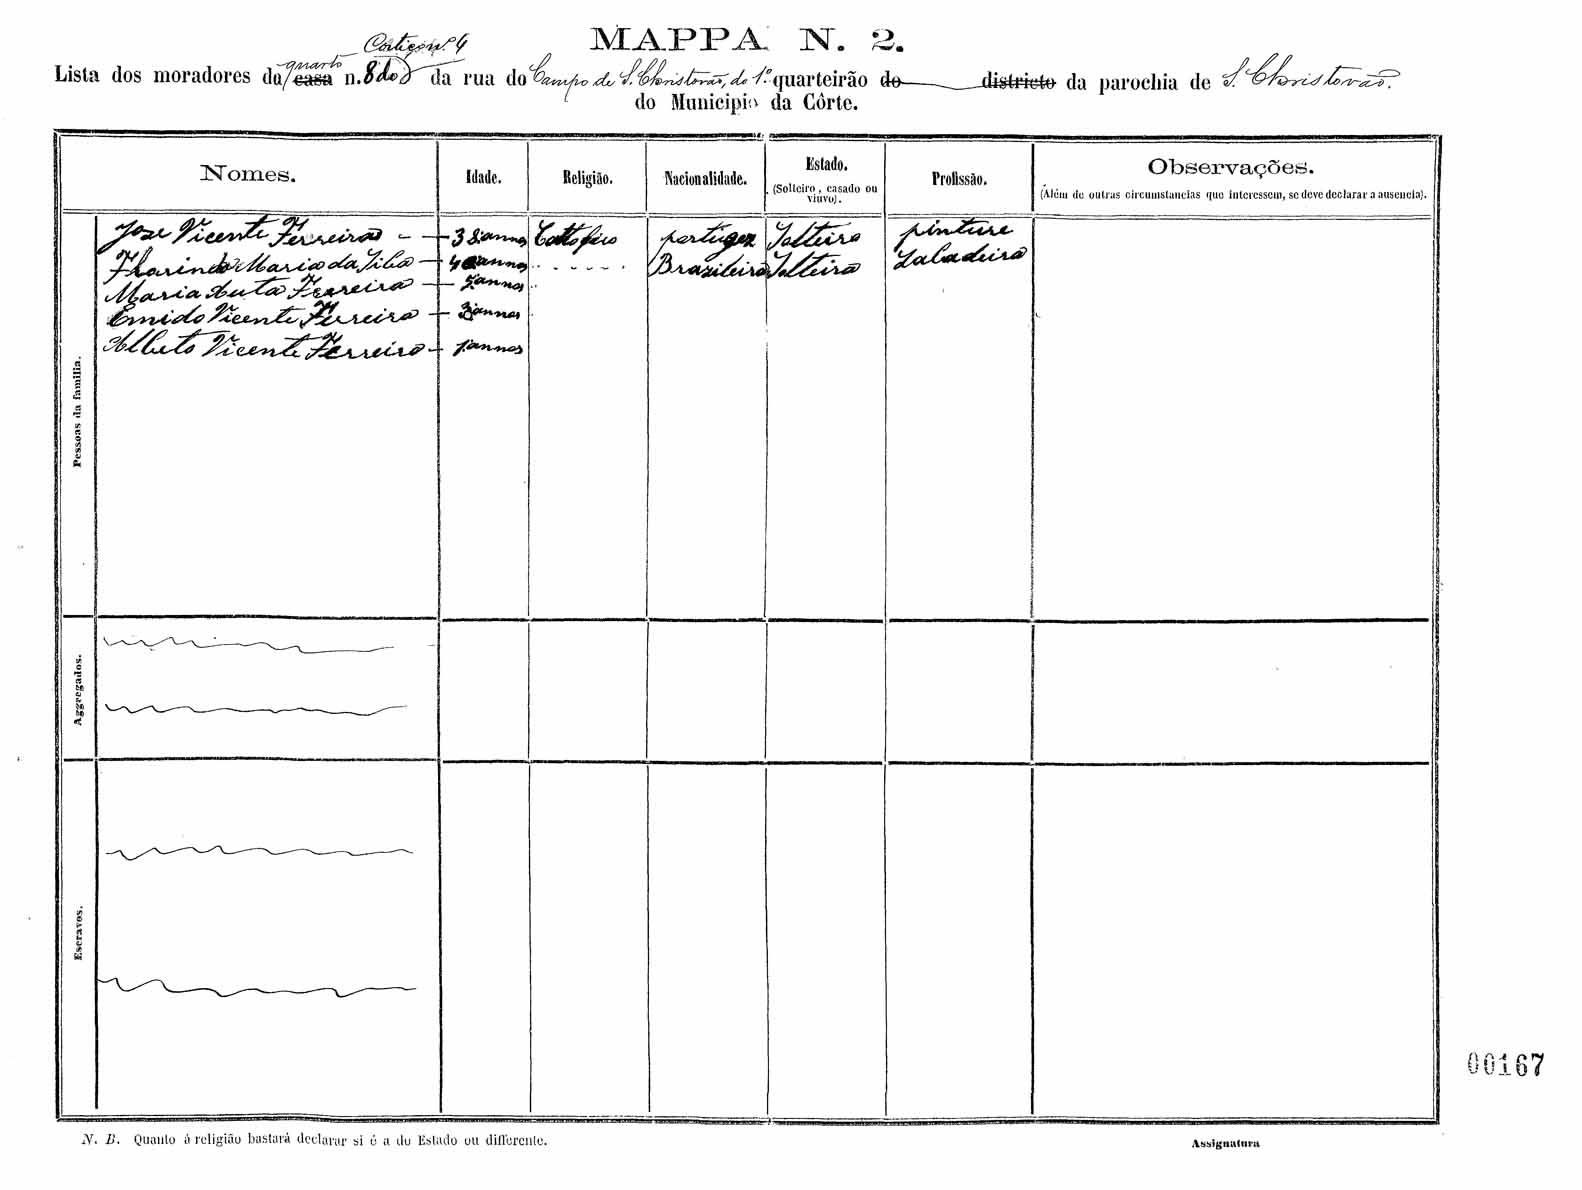 MAPPA N. 2.
Cortiço nº 4
quarto
Lista dos moradores da casa n. 8 do da rua do Campo de S. Christovão, do 1º quarteirão do districto da parochia de S. Christovão.
do Municipio da Côrte.
Nomes. Idade. Religião. Nacionalidade. Estado. (Solteiro, casado ou viuvo). Profissão. Observações. (Além de outras circumstancias que interessem, se deve declarar a ausencia).
Pessoas da familia.
Jose Vicente Ferreira - 38 annos Cattolico portuguez Solteiro pinture
Maria da Silva - annos Brazileira Solteira Labadeira
Maria Auta Ferreira - annos
Emido Vicente Ferreira - 3 annos
Alberto Vicente Ferreira - 1 annos
Aggregados.
Escravos.
00167
N. B. Quanto á religião bastará declarar si é a do Estado ou differente.
Assignatura